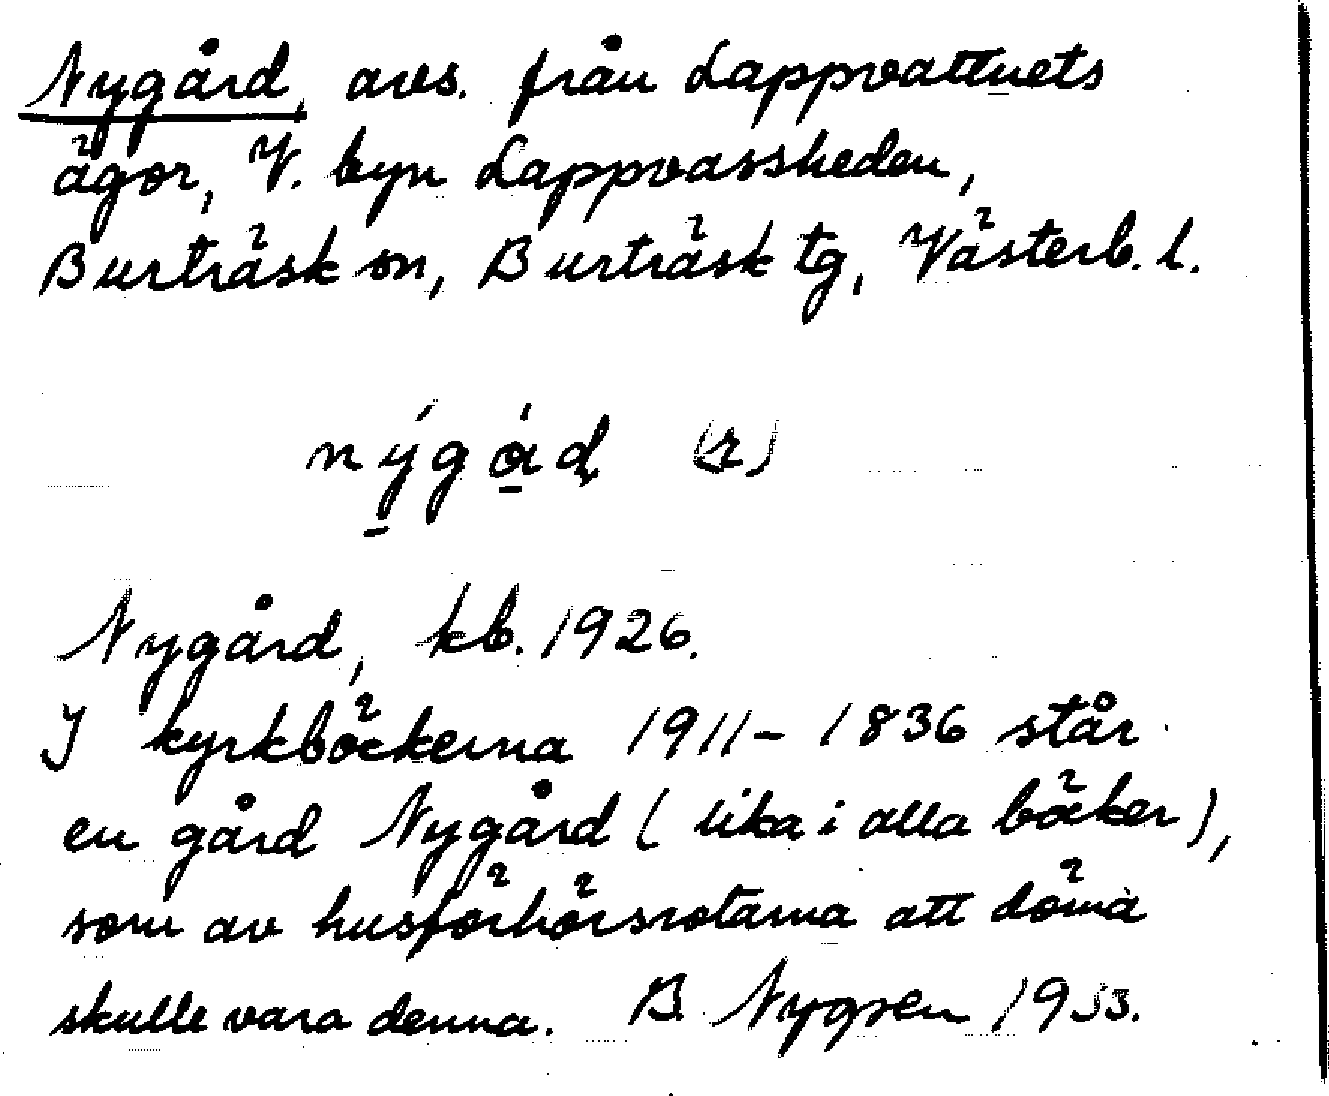 Nygård, avs. från Lappvattnets
ägor, V. byn Lappvassheden,
Burträsk sn, Burträsk tg, Västerb. l.
nýgård
Nygård, kb. 1926.
I kyrkböckerna 1911–1836 står
en gård Nygård (lika i alla böcker),
som av husförhörsrotarna att döma
skulle vara denna. B. Nygren 1953.